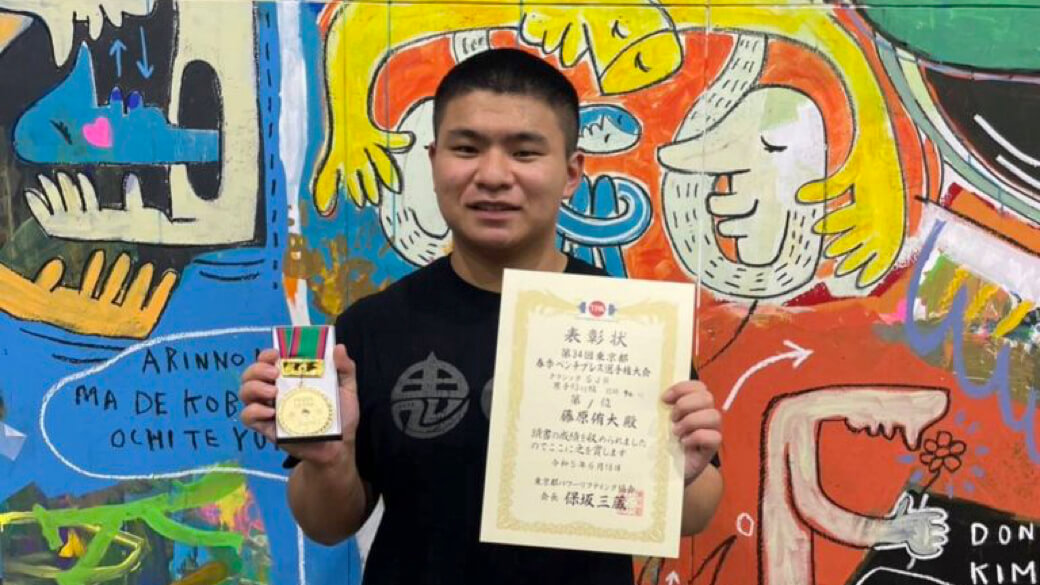 表彰状
第34回東京都
春季ベンチプレス選手権大会
クラシック SJR
第 1 位
藤原侑大 殿
頭書の成績を収められました
のでここに之を賞します
令和5年6月18日
東京都パワーリフティング協会
会長 保坂三蔵
ARINNO
MA DE KOB
OCHITE YU
DON
KIM